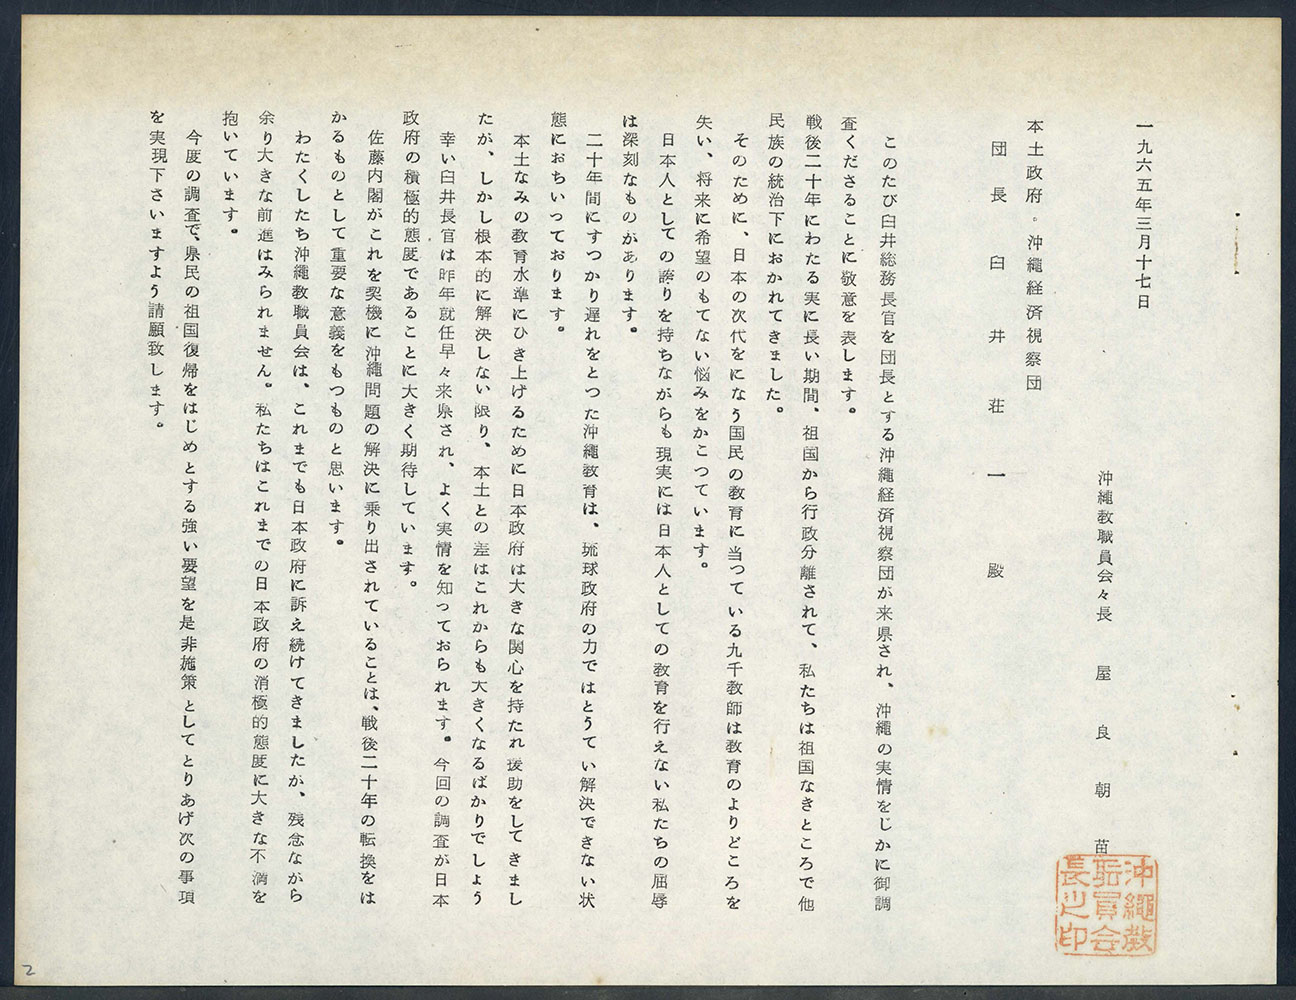 一九六五年三月十七日
沖繩教職員会々長　屋良朝苗
沖繩教
職員会
長之印
本土政府・沖繩経済視察団
団長　臼井荘一　殿
このたび臼井総務長官を団長とする沖繩経済視察団が来県され、沖繩の実情をじかに御調
査くださることに敬意を表します。
戦後二十年にわたる実に長い期間、祖国から行政分離されて、私たちは祖国なきところで他
民族の統治下におかれてきました。
そのために、日本の次代をになう国民の教育に当つている九千教師は教育のよりどころを
失い、将来に希望のもてない悩みをかこつています。
日本人としての誇りを持ちながらも現実には日本人としての教育を行えない私たちの屈辱
は深刻なものがあります。
二十年間にすつかり遅れをとつた沖繩教育は、琉球政府の力ではとうてい解決できない状
態におちいつております。
本土なみの教育水準にひき上げるために日本政府は大きな関心を持たれ援助をしてきまし
たが、しかし根本的に解決しない限り、本土との差はこれからも大きくなるばかりでしよう
幸い臼井長官は昨年就任早々来県され、よく実情を知つておられます。今回の調査が日本
政府の積極的態度であることに大きく期待しています。
佐藤内閣がこれを契機に沖繩問題の解決に乗り出されていることは、戦後二十年の転換をは
かるものとして重要な意義をもつものと思います。
わたくしたち沖繩教職員会は、これまでも日本政府に訴え続けてきましたが、残念ながら
余り大きな前進はみられません。私たちはこれまでの日本政府の消極的態度に大きな不満を
抱いています。
今度の調査で、県民の祖国復帰をはじめとする強い要望を是非施策としてとりあげ次の事項
を実現下さいますよう請願致します。
2